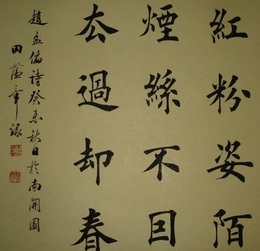 紅粉姿陌
煙絲不囙
厺過却春
趙孟頫詩癸未秋日於南開園
田蘊章錄